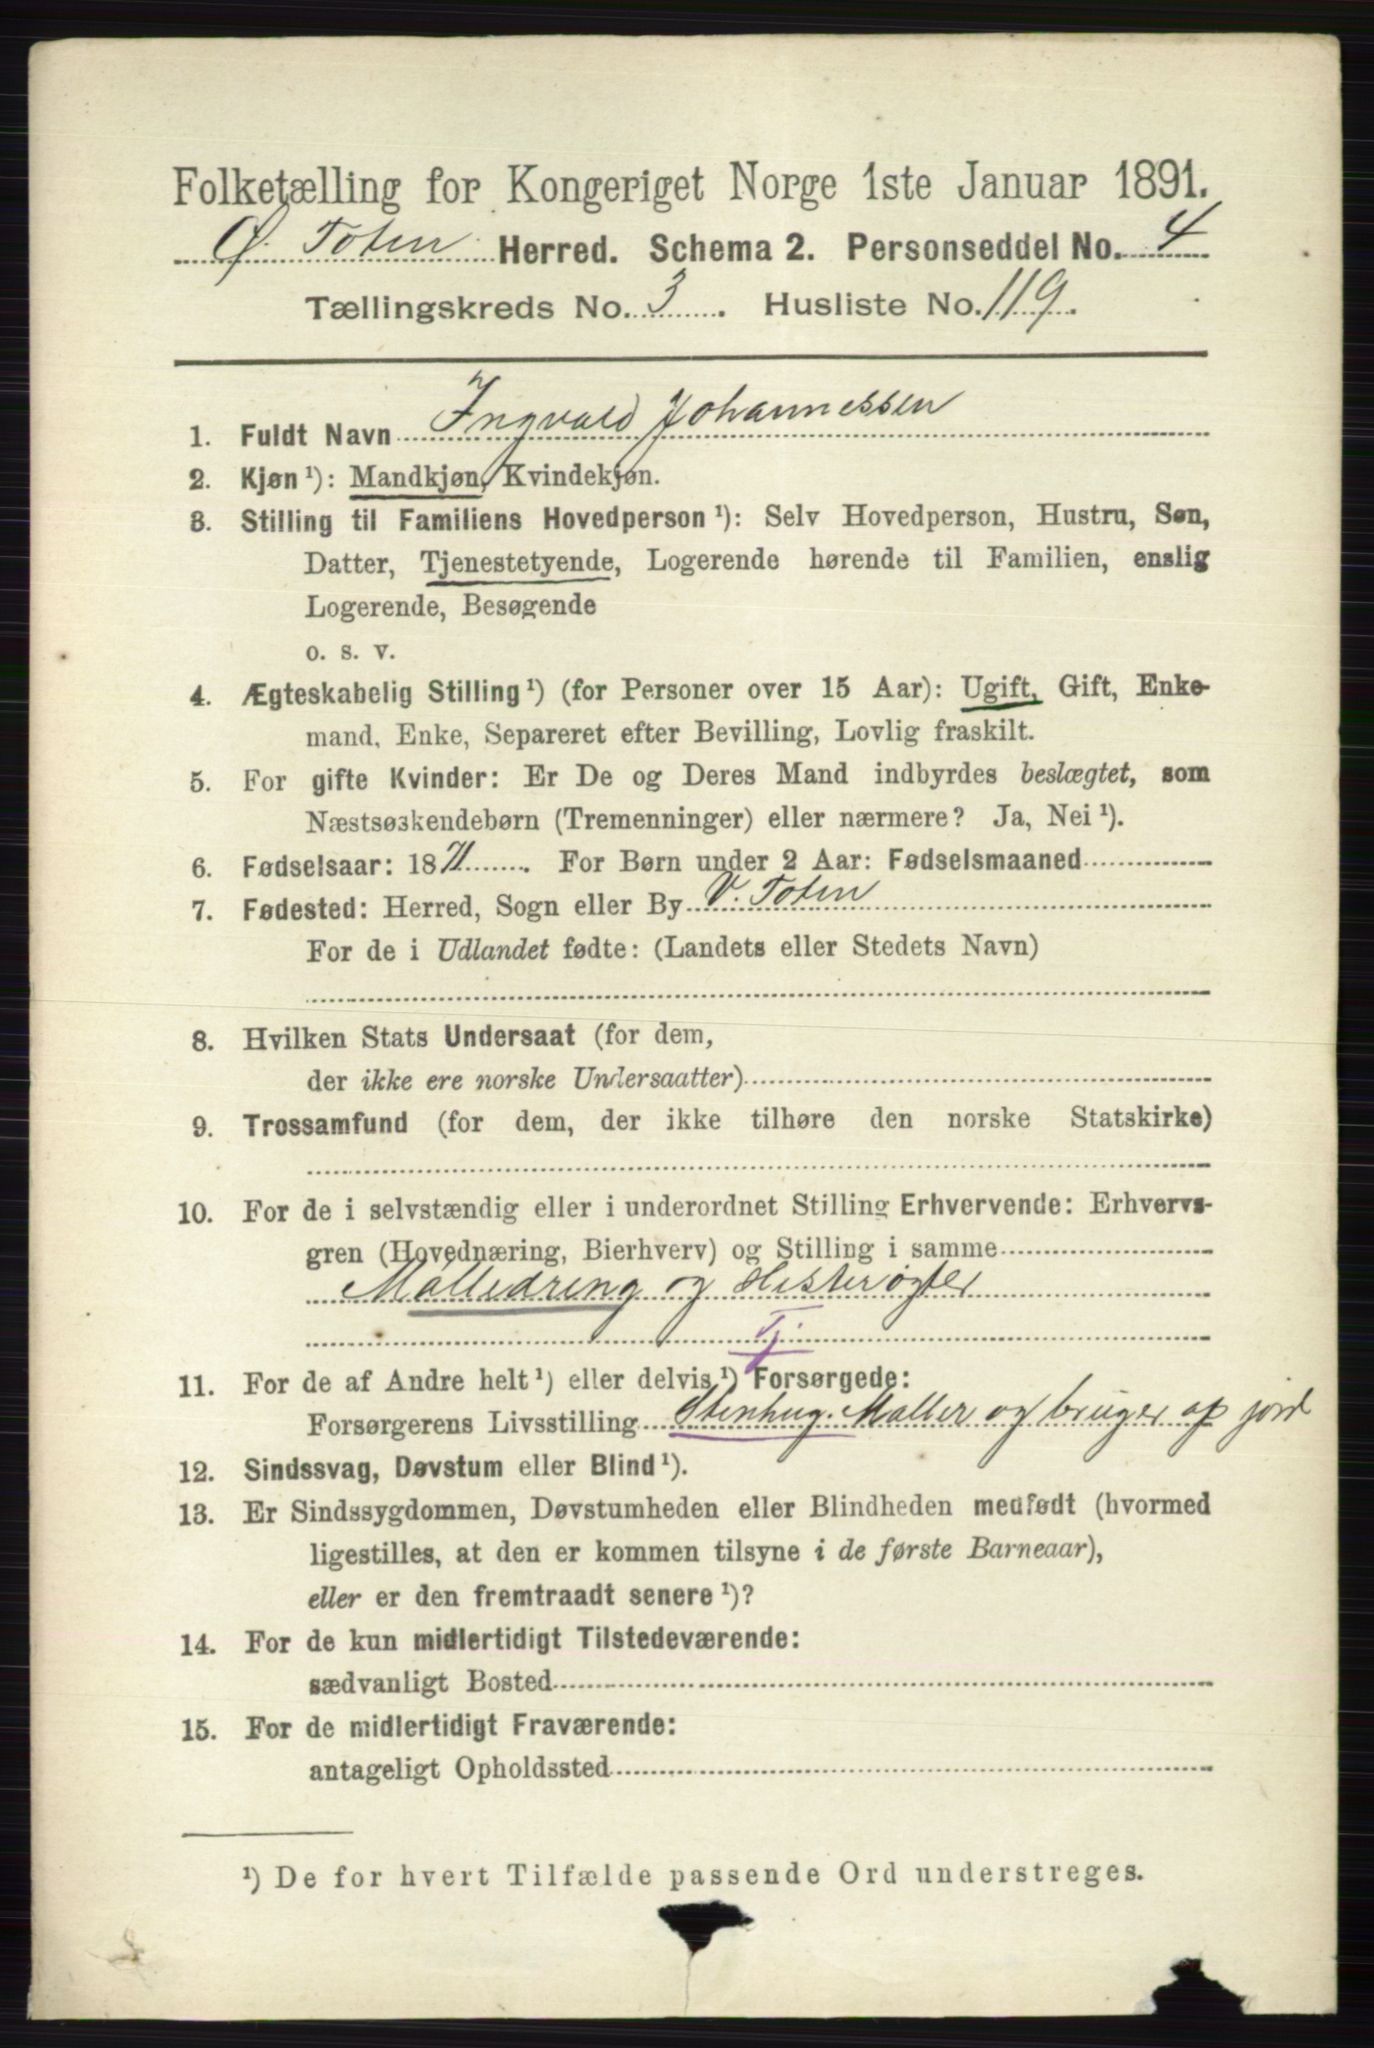 Folketælling for Kongeriget Norge 1ste Januar 1891.
Ø. Toten Herred. Schema 2. Personseddel No. 4
Tællingskreds No. 3. Husliste No. 119.
1. Fuldt Navn Ingvald Johannessen
2. Kjøn¹): Mandkjøn, Kvindekjøn.
3. Stilling til Familiens Hovedperson¹): Selv Hovedperson, Hustru, Søn,
Datter, Tjenestetyende, Logerende hørende til Familien, enslig
Logerende, Besøgende
o. s. v.
4. Ægteskabelig Stilling¹) (for Personer over 15 Aar): Ugift, Gift, Enke-
mand, Enke, Separeret efter Bevilling, Lovlig fraskilt.
5. For gifte Kvinder: Er De og Deres Mand indbyrdes beslægtet, som
Næstsøskendebørn (Tremenninger) eller nærmere? Ja, Nei¹).
6. Fødselsaar: 1871. For Børn under 2 Aar: Fødselsmaaned
7. Fødested: Herred, Sogn eller By V. Toten
For de i Udlandet fødte: (Landets eller Stedets Navn)
8. Hvilken Stats Undersaat (for dem,
der ikke ere norske Undersaatter)
9. Trossamfund (for dem, der ikke tilhøre den norske Statskirke)
10. For de i selvstændig eller i underordnet Stilling Erhvervende: Erhvervs-
gren (Hovednæring, Bierhverv) og Stilling i samme
Malledreng og Hesterøgter
Tj.
11. For de af Andre helt¹) eller delvis¹) Forsørgede:
Forsørgerens Livsstilling Stenhug. Maller og bruger op jord
12. Sindssvag, Døvstum eller Blind¹).
13. Er Sindssygdommen, Døvstumheden eller Blindheden medfødt (hvormed
ligestilles, at den er kommen tilsyne i de første Barneaar),
eller er den fremtraadt senere¹)?
14. For de kun midlertidigt Tilstedeværende:
sædvanligt Bosted
15. For de midlertidigt Fraværende:
antageligt Opholdssted
¹) De for hvert Tilfælde passende Ord understreges.